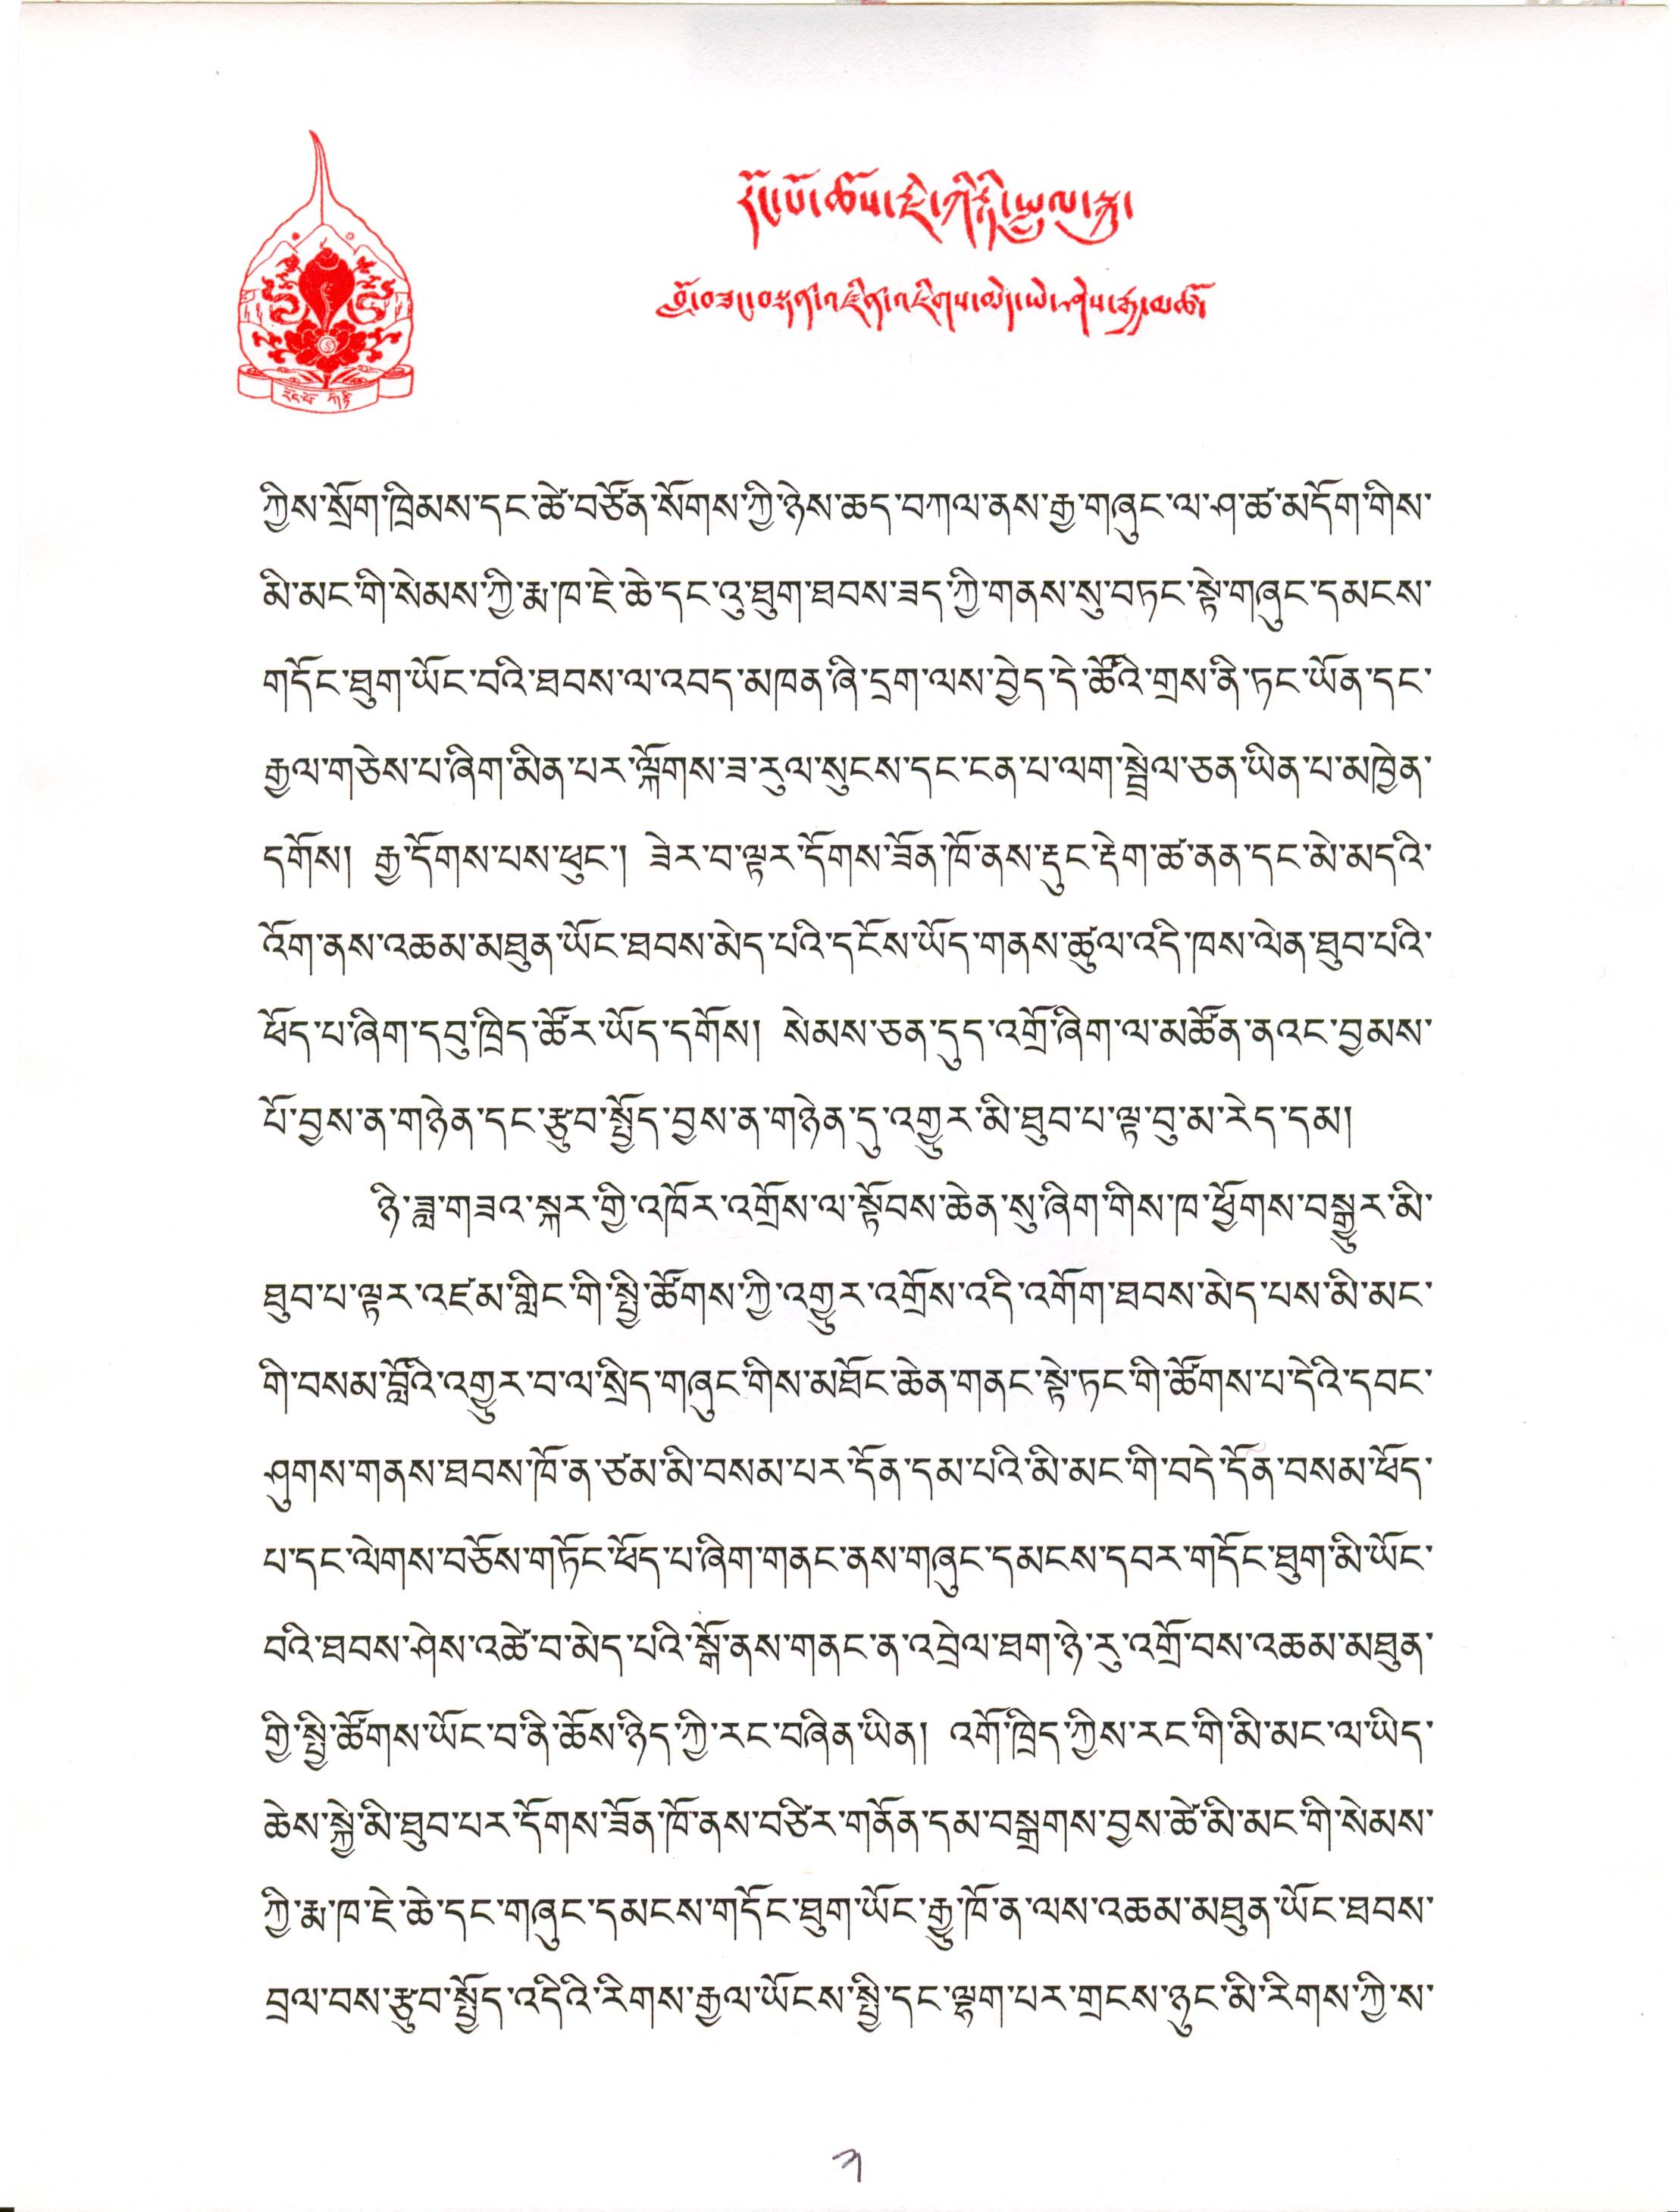 ཀྱིས་སྲོག་ཁྲིམས་དང་ཚེ་བཙོན་སོགས་ཀྱི་ཉེས་ཆད་བཀལ་ནས་རྒྱ་གཞུང་ལ་ཤ་ཚ་མདོག་གིས་
མི་མང་གི་སེམས་ཀྱི་རྨ་ཁ་ཇེ་ཆེ་དང་འུ་ཐུག་ཐབས་ཟད་ཀྱི་གནས་སུ་བཏང་སྟེ་གཞུང་དམངས་
གདོང་ཐུག་ཡོང་བའི་ཐབས་ལ་འབད་མཁན་ཞི་དྲག་ལས་བྱེད་དེ་ཚོའི་གྲས་ནི་ཏང་ཡོན་དང་
རྒྱལ་གཅེས་པ་ཞིག་མིན་པར་ལྐོགས་ཟ་རུལ་སུངས་དང་ངན་པ་ལག་སྦྲེལ་ཅན་ཡིན་པ་མཁྱེན་
དགོས། རྒྱ་དོགས་པས་ཕུང་། ཟེར་བ་ལྟར་དོགས་ཟོན་ཁོ་ནས་རྡུང་རྡེག་ཚ་ནན་དང་མེ་མདའི་
འོག་ནས་འཆམ་མཐུན་ཡོང་ཐབས་མེད་པའི་དངོས་ཡོད་གནས་ཚུལ་འདི་ཁས་ལེན་ཐུབ་པའི་
ཕོད་པ་ཞིག་དབུ་ཁྲིད་ཚོར་ཡོད་དགོས། སེམས་ཅན་དུད་འགྲོ་ཞིག་ལ་མཚོན་ནའང་བྱམས་
པོ་བྱས་ན་གཉེན་དང་རྩུབ་སྤྱོད་བྱས་ན་གཉེན་དུ་འགྱུར་མི་ཐུབ་པ་ལྟ་བུ་མ་རེད་དམ།
ཉི་ཟླ་གཟའ་སྐར་གྱི་འཁོར་འགྲོས་ལ་སྟོབས་ཆེན་སུ་ཞིག་གིས་ཁ་ཕྱོགས་བསྒྱུར་མི་
ཐུབ་པ་ལྟར་འཛམ་གླིང་གི་སྤྱི་ཚོགས་ཀྱི་འགྱུར་འགྲོས་འདི་འགོག་ཐབས་མེད་པས་མི་མང་
གི་བསམ་བློའི་འགྱུར་བ་ལ་སྲིད་གཞུང་གིས་མཐོང་ཆེན་གནང་སྟེ་ཏང་གི་ཚོགས་པ་དེའི་དབང་
ཤུགས་གནས་ཐབས་ཁོ་ན་ཙམ་མི་བསམ་པར་དོན་དམ་པའི་མི་མང་གི་བདེ་དོན་བསམ་ཕོད་
པ་དང་ལེགས་བཅོས་གཏོང་ཕོད་པ་ཞིག་གནང་ནས་གཞུང་དམངས་དབར་གདོང་ཐུག་མི་ཡོང་
བའི་ཐབས་ཤེས་འཚེ་བ་མེད་པའི་སྒོ་ནས་གནང་ན་འབྲེལ་ཐག་ཉེ་རུ་འགྲོ་བས་འཆམ་མཐུན་
གྱི་སྤྱི་ཚོགས་ཡོང་བ་ནི་ཆོས་ཉིད་ཀྱི་རང་བཞིན་ཡིན། འགོ་ཁྲིད་ཀྱིས་རང་གི་མི་མང་ལ་ཡིད་
ཆེས་སྐྱེ་མི་ཐུབ་པར་དོགས་ཟོན་ཁོ་ནས་བཙིར་གནོན་དམ་བསྒྲགས་བྱས་ཚེ་མི་མང་གི་སེམས་
ཀྱི་རྨ་ཁ་ཇེ་ཆེ་དང་གཞུང་དམངས་གདོང་ཐུག་ཡོང་རྒྱུ་ཁོ་ན་ལས་འཆམ་མཐུན་ཡོང་ཐབས་
བྲལ་བས་རྩུབ་སྤྱོད་འདིའི་རིགས་རྒྱལ་ཡོངས་སྤྱི་དང་ལྷག་པར་གྲངས་ཉུང་མི་རིགས་ཀྱི་ས་